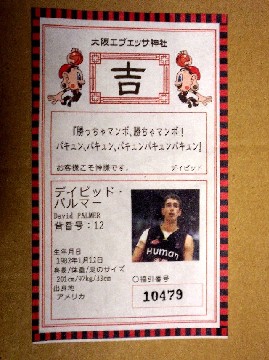 大阪エブエッサ神社
吉
『勝っちゃマンボ、勝ちゃマンボ!
バキュン、バキュン、バキュンバキュンバキュン』
お客様こそ神様です。 デイビッド
デイビッド・
パルマー
David PALMER
背番号:12
生年月日
身長/体重/足のサイズ
201cm/97kg/33cm
出身地
アメリカ
Human
〇福引番号
10479